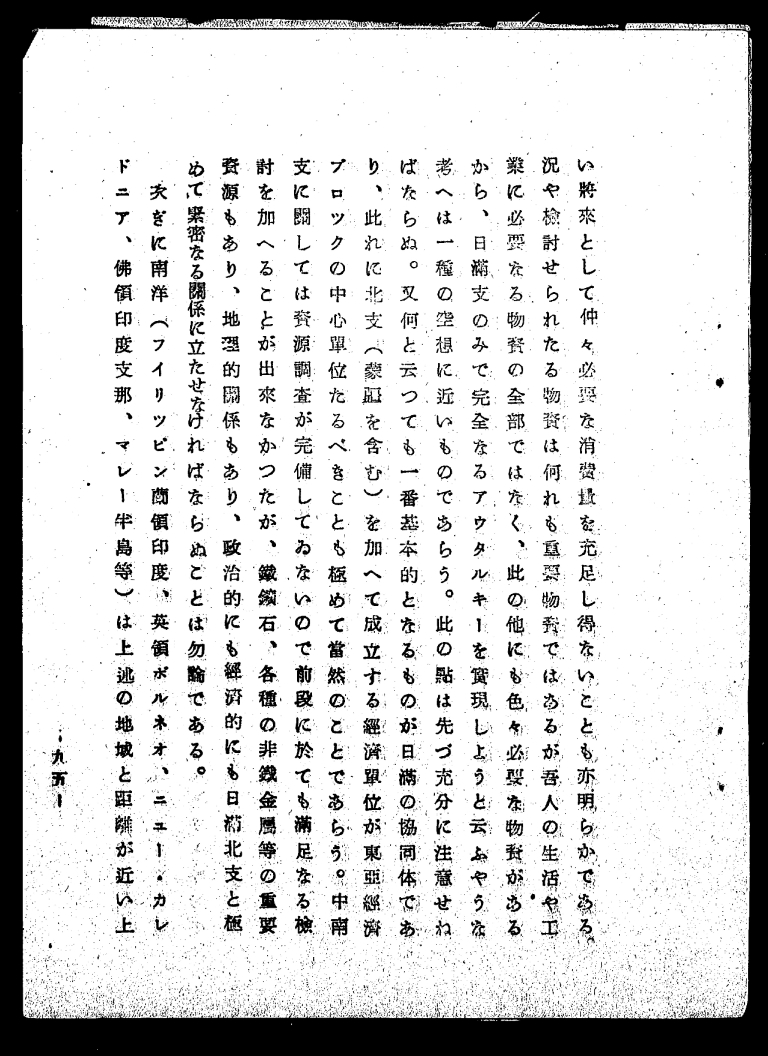 い將來として仲々必要な消費量を充足し得ないことも亦明らかである。
況や檢討せられたる物資は何れも重要物資ではあるが吾人の生活や工
業に必要なる物資の全部ではなく、此の他にも色々必要な物資がある
から、日滿支のみで完全なるアウタルキーを實現しようと云ふやうな
考へは一種の空想に近いものであらう。此の點は先づ充分に注意せね
ばならぬ。又何と云つても一番基本的となるものが日滿の協同体であ
り、此れに北支（蒙疆を含む）を加へて成立する經濟單位が東亞經濟
ブロツクの中心單位たるべきことも極めて當然のことであらう。中南
支に關しては資源調査が完備してゐないので前段に於ても滿足なる檢
討を加へることが出來なかつたが、鐵鑛石、各種の非鐵金屬等の重要
資源もあり、地理的關係もあり、政治的にも經濟的にも日滿北支と極
めて緊密なる關係に立たせなければならぬことは勿論である。
次ぎに南洋（フイリツピン蘭領印度、英領ボルネオ、ニユー・カレ
ドニア、佛領印度支那、マレー半島等）は上述の地域と距離が近い上
九五